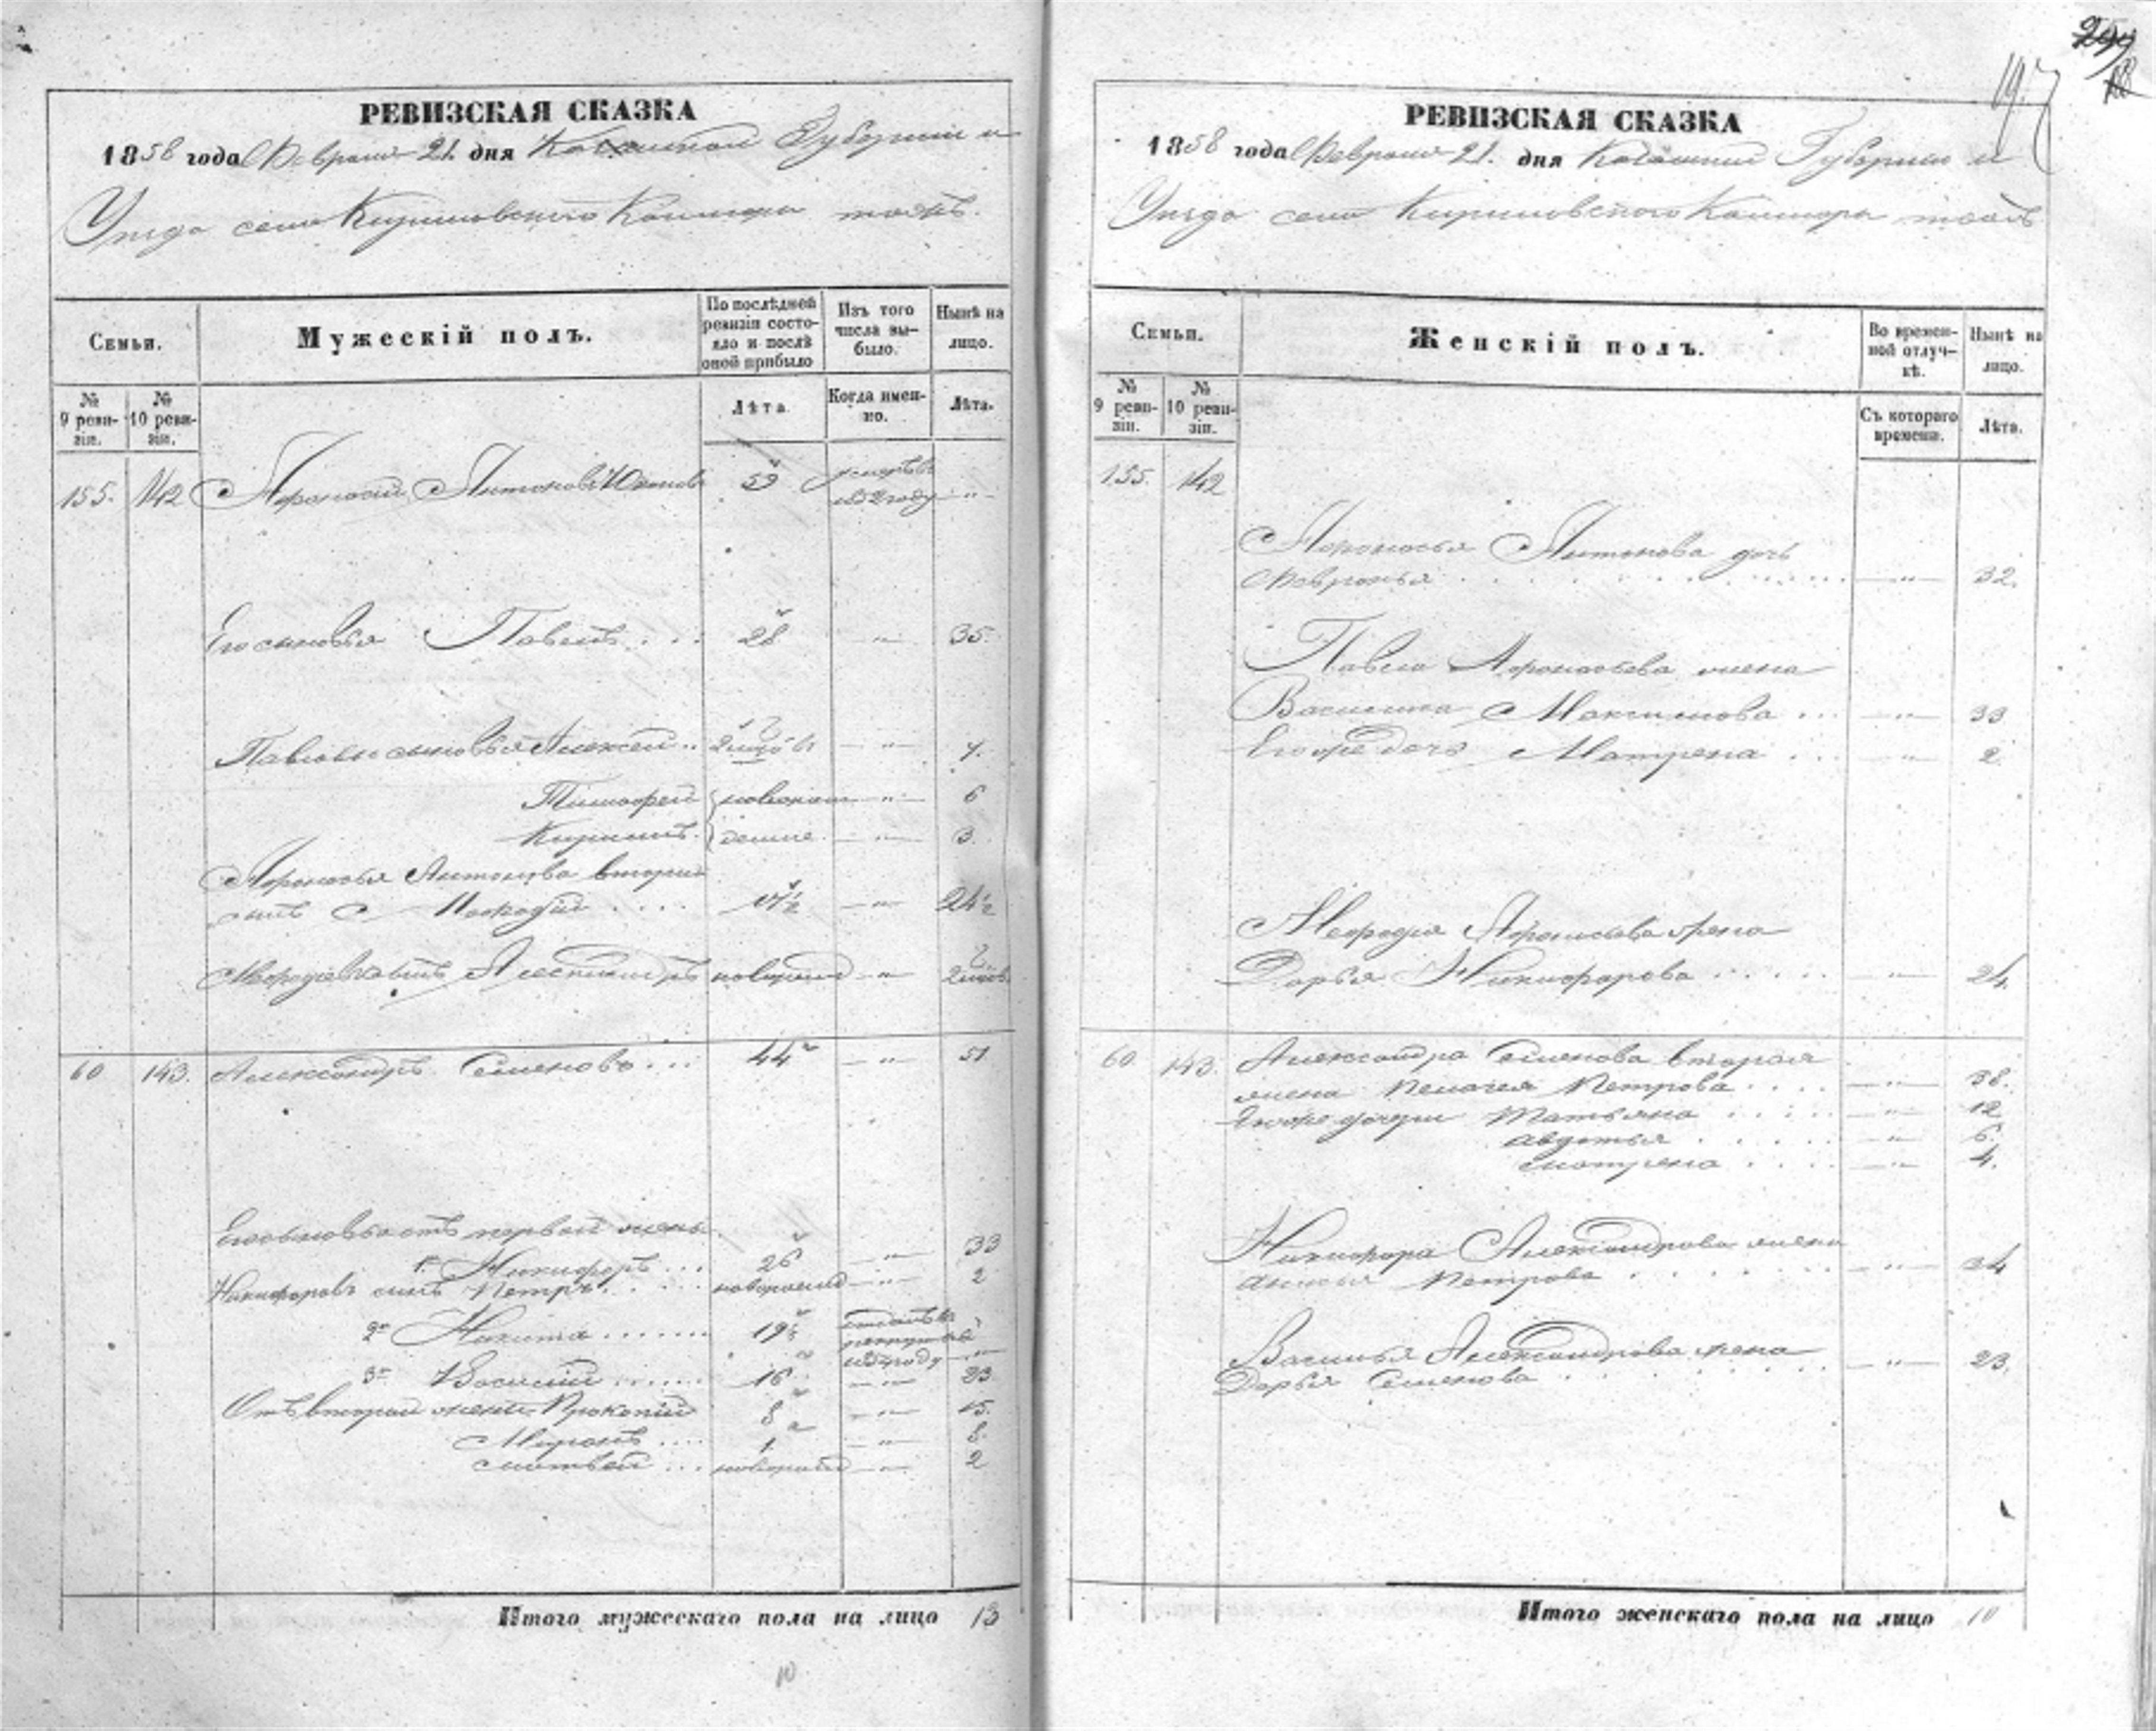 297
197
РЕВИЗСКАЯ СКАЗКА
1858 года Февраля 21. дня Губернии и
Уезда села Кириловского Каймары тожъ.
Семьи.
Мужескій полъ.
По послѣдней ревизіи состояло и послѣ оной прибыло
Изъ того числа выбыло.
Нынѣ на лицо.
№ 9 ревизіи.
№ 10 ревизіи.
Лѣта
Когда именно.
Лѣта.
155. 142 Афонасий Антоновъ 59 умеръ въ 1852 году "
Его сыновья Павелъ... 28 " 35.
Павловы сыновья Алексей.. " 7.
Тимофей новорож " 6
Кирилъ. денные. " 3.
Афонасья Антонова второй
сынъ Мефодий .... 17½ " 24½
Мефодиевъ сынъ Александръ новорожд "
60 143. Александръ Семеновъ... 44 " 51
Его сыновья отъ первой жены
1й Никифоръ... 26 " 33
Никифоровъ сынъ Петръ.... новорожд " 2
2й Никита....... 19½ отданъ въ рекруты въ 1854 году "
3й Василий...... 16 " 23
Отъ второй жены Прокопий 8 " 15.
Миронъ.... 1 " 8.
Матвей... новорожд " 2
Итого мужескаго пола на лицо 13
10
РЕВИЗСКАЯ СКАЗКА
1858 года Февраля 21. дня Губернии и
Уезда села Кириловского Каймары тожъ
Семьи.
Женскій полъ.
Во временной отлучкѣ.
Нынѣ на лицо.
№ 9 ревизіи.
№ 10 ревизіи.
Съ котораго времени.
Лѣта.
155. 142
Афонасья Антонова дочь
Февронья " 32.
Павла Афонасьева жена
Василиса Максимова... " 33
Его же дочь Матрена ... " 2.
Мефодия Афонасьева жена
Дарья Никифорова ..... " 24.
60. 143. Александра Семенова вторая
жена Пелагея Петрова .... " 38.
Его же дочери Татьяна ..... " 12
Авдотья ..... " 6.
Матрена .... " 4.
Никифора Александрова жена
Петрова " 34
Василья Александрова жена
Дарья Семенова " 23.
Итого женскаго пола на лицо 10